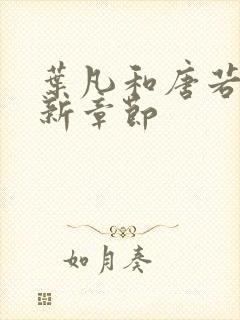 葉凡和唐若
新章節
如月奏